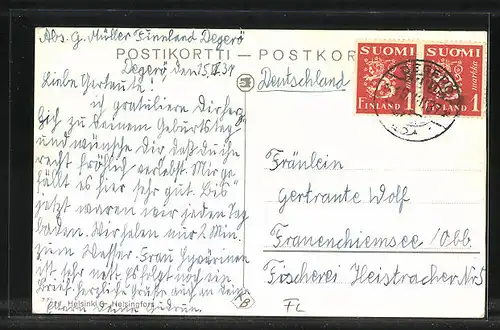 Abs. G. Müller Finnland Degerö
POSTIKORTTI — POSTKORT
Degerö den 15.IV.31
Deutschland
SUOMI
FINLAND 1 markka
SUOMI
FINLAND 1 markka
Liebe Gertrute!
ich gratuliere Dir herz
zu Deinem Geburtstag
und wünsche dir daß du ihn
recht fröhlich verlebst. Mir ge-
fällt es hier sehr gut. Bis
jetzt waren wir jeden Tag
baden. Wir haben nur 2 Min.
zum Wasser. Frau
ist sehr nett. es folgt noch ein
Brief. herzliche Grüße auch an deine
Eltern deine Gudrun.
Fräulein
Gertrante Wolf
Frauenchiemsee/Obb.
Fischerei Heistracher Nr 5
Helsinki — Helsingfors
FL